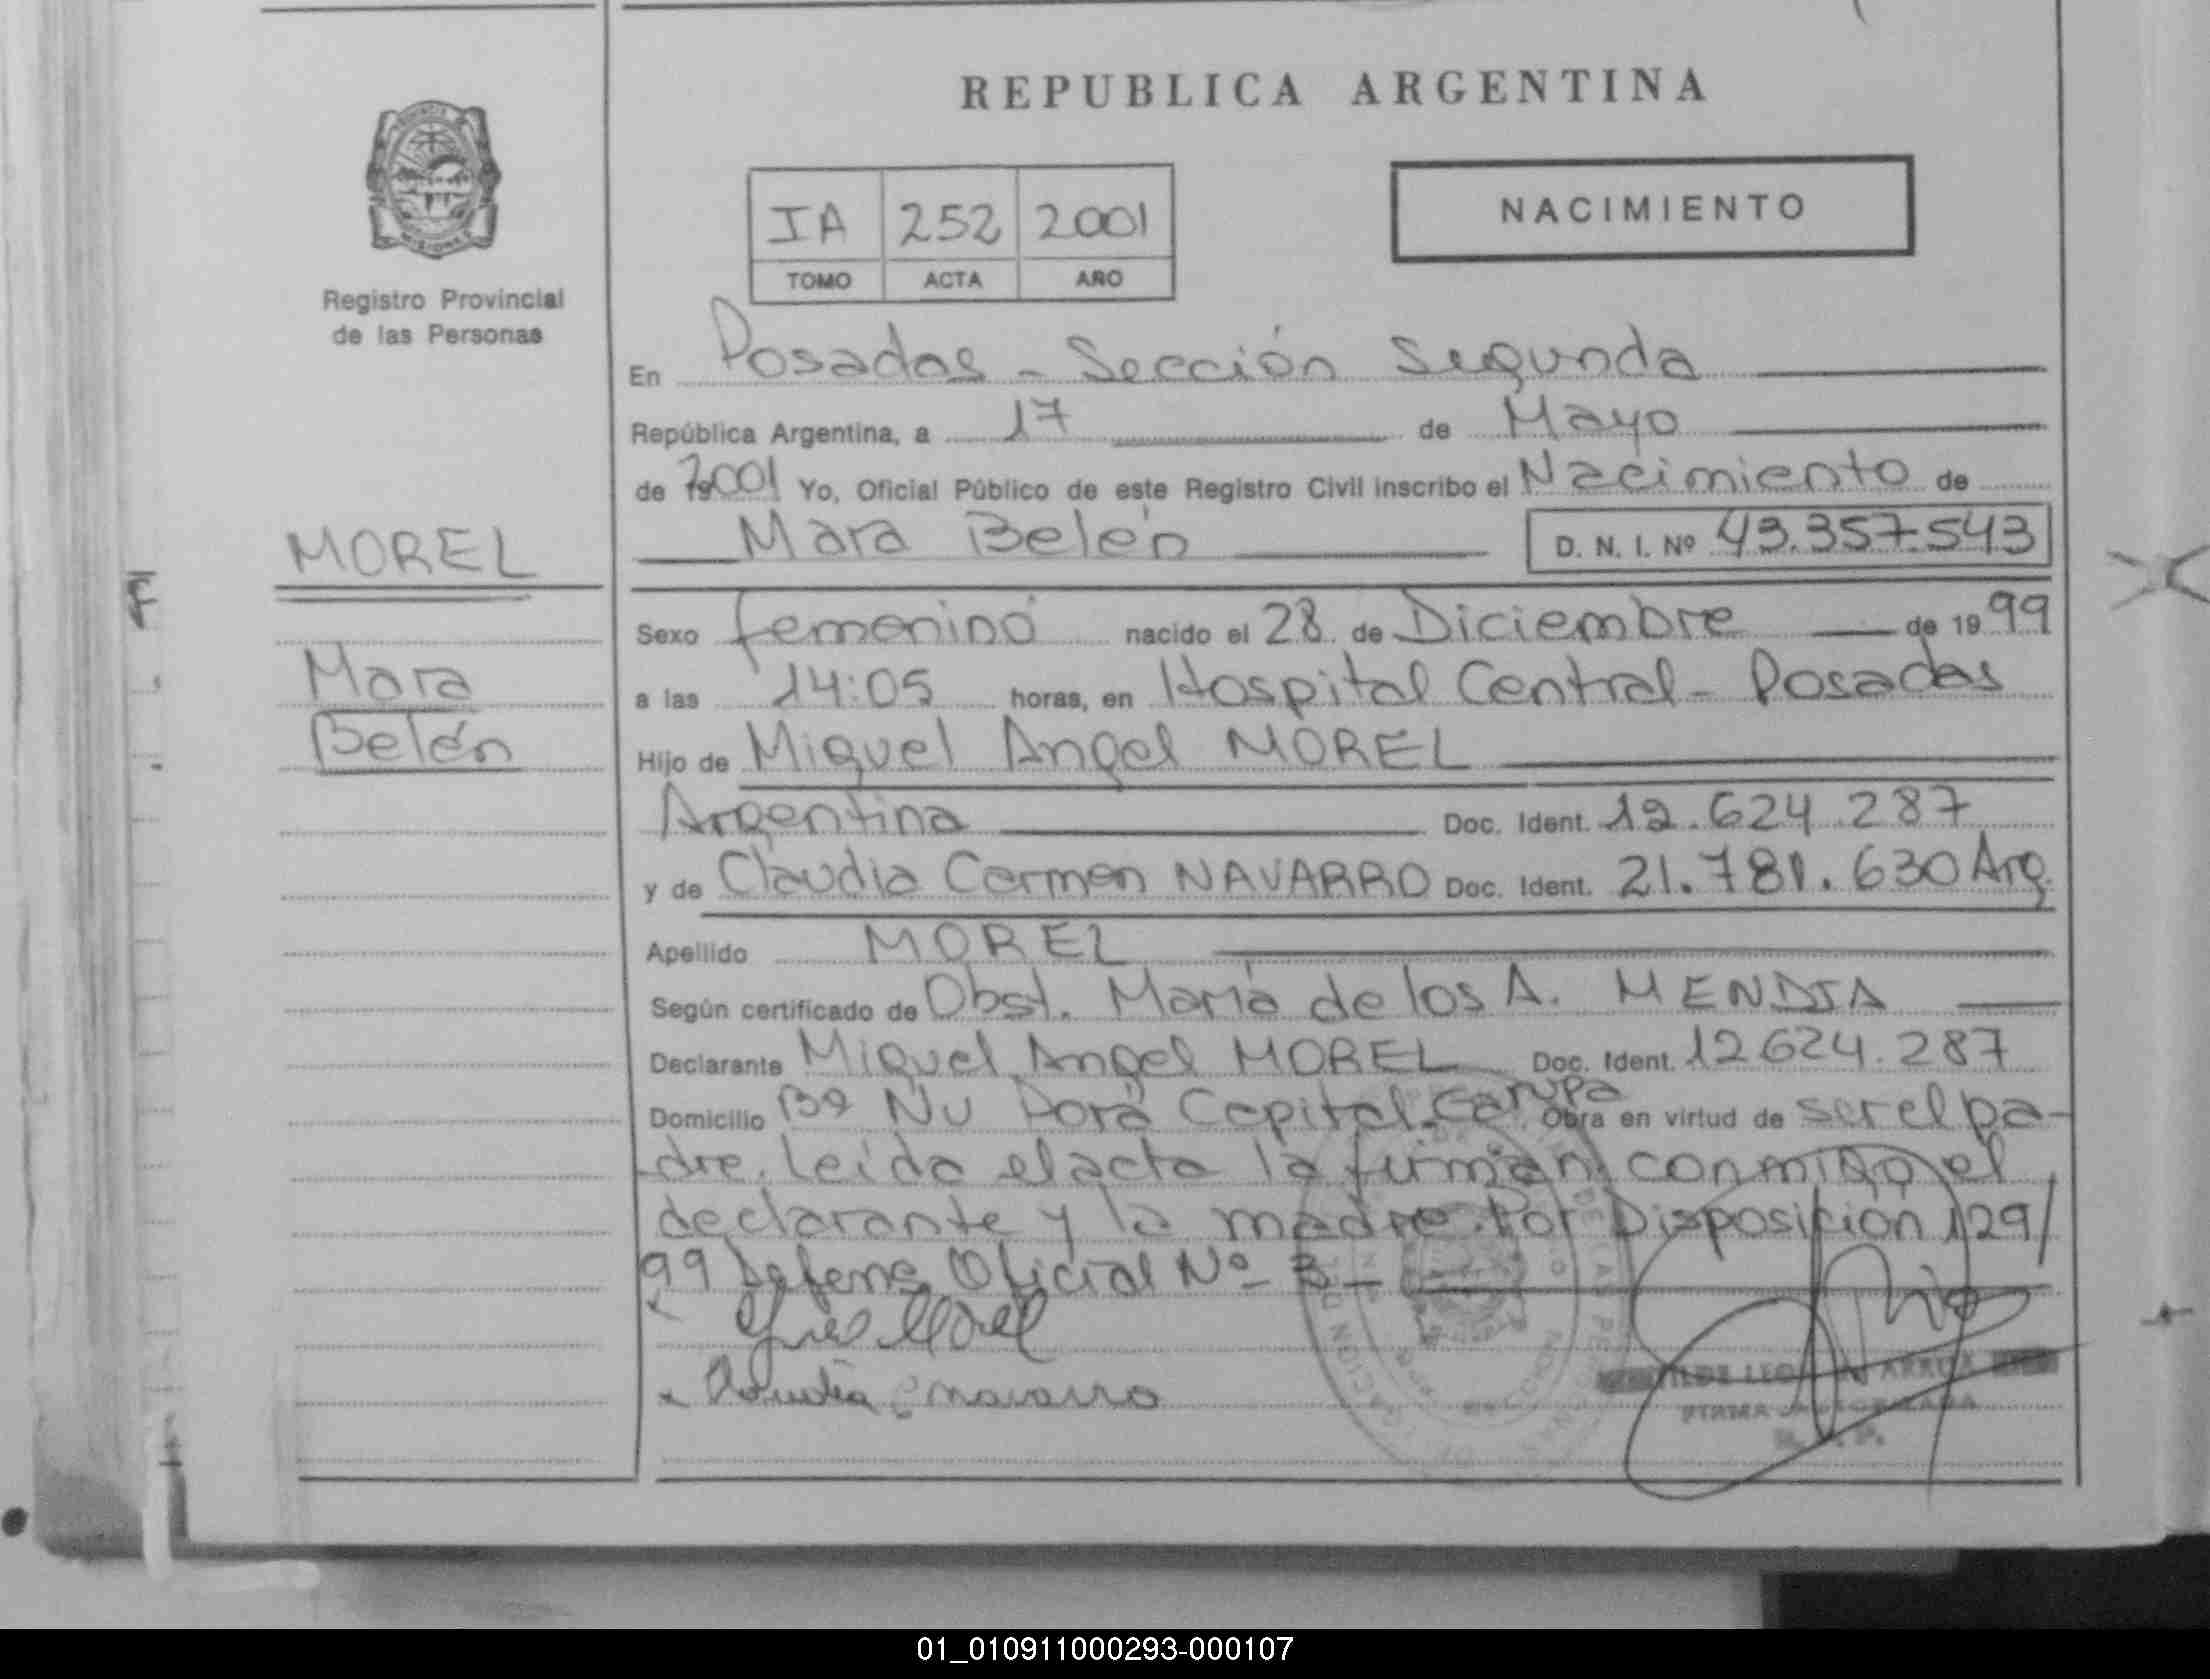 REPUBLICA ARGENTINA
NACIMIENTO
IA 252 2001
TOMO ACTA AÑO
PROVINCIA
MISIONES
Registro Provincial
de las Personas
En Posadas - Sección Segunda
República Argentina, a 17 de Mayo
de 2001 Yo, Oficial Público de este Registro Civil inscribo el Nacimiento de
Mara Belén D. N. I. Nº 43.357.543
MOREL
Mara
Belén
Sexo femenino nacido el 28 de Diciembre de 1999
a las 14:05 horas, en Hospital Central - Posadas
Hijo de Miguel Angel MOREL
Argentina Doc. Ident. 12.624.287
y de Claudia Carmen NAVARRO Doc. Ident. 21.781.630 Arg.
Apellido MOREL
Según certificado de Obst. María de los A. MENDIA
Declarante Miguel Angel MOREL Doc. Ident. 12624.287
Domicilio Bº Ñu Porá Capital. Garupa Obra en virtud de ser el pa-
dre. Leída el acta la firman conmigo el
declarante y la madre. Por Disposición 129/
99 Defens. Oficial Nº 3 -
Morel
x Claudia C navarro
FIRMA AUTORIZADA
01_010911000293-000107